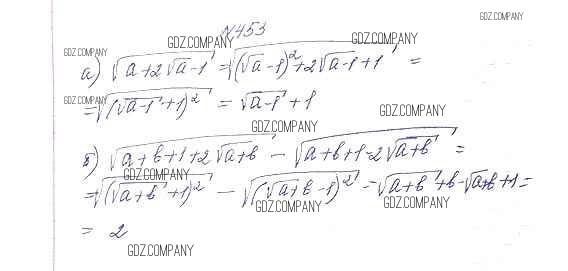 GDZ.COMPANY
№453
GDZ.COMPANY GDZ.COMPANY GDZ.COMPANY
а) √(a+2√(a-1)) = √((√a-1)²+2√(a-1)+1) =
GDZ.COMPANY
= √((√(a-1)+1)²) = √(a-1)+1
GDZ.COMPANY
GDZ.COMPANY
б) √(a+b+1+2√(a+b)) - √(a+b+1-2√(a+b)) =
GDZ.COMPANY
= √((√(a+b)+1)²) - √((√(a+b)-1)²) = √(a+b)+b-√(a+b)+1 =
GDZ.COMPANY GDZ.COMPANY
= 2
GDZ.COMPANY